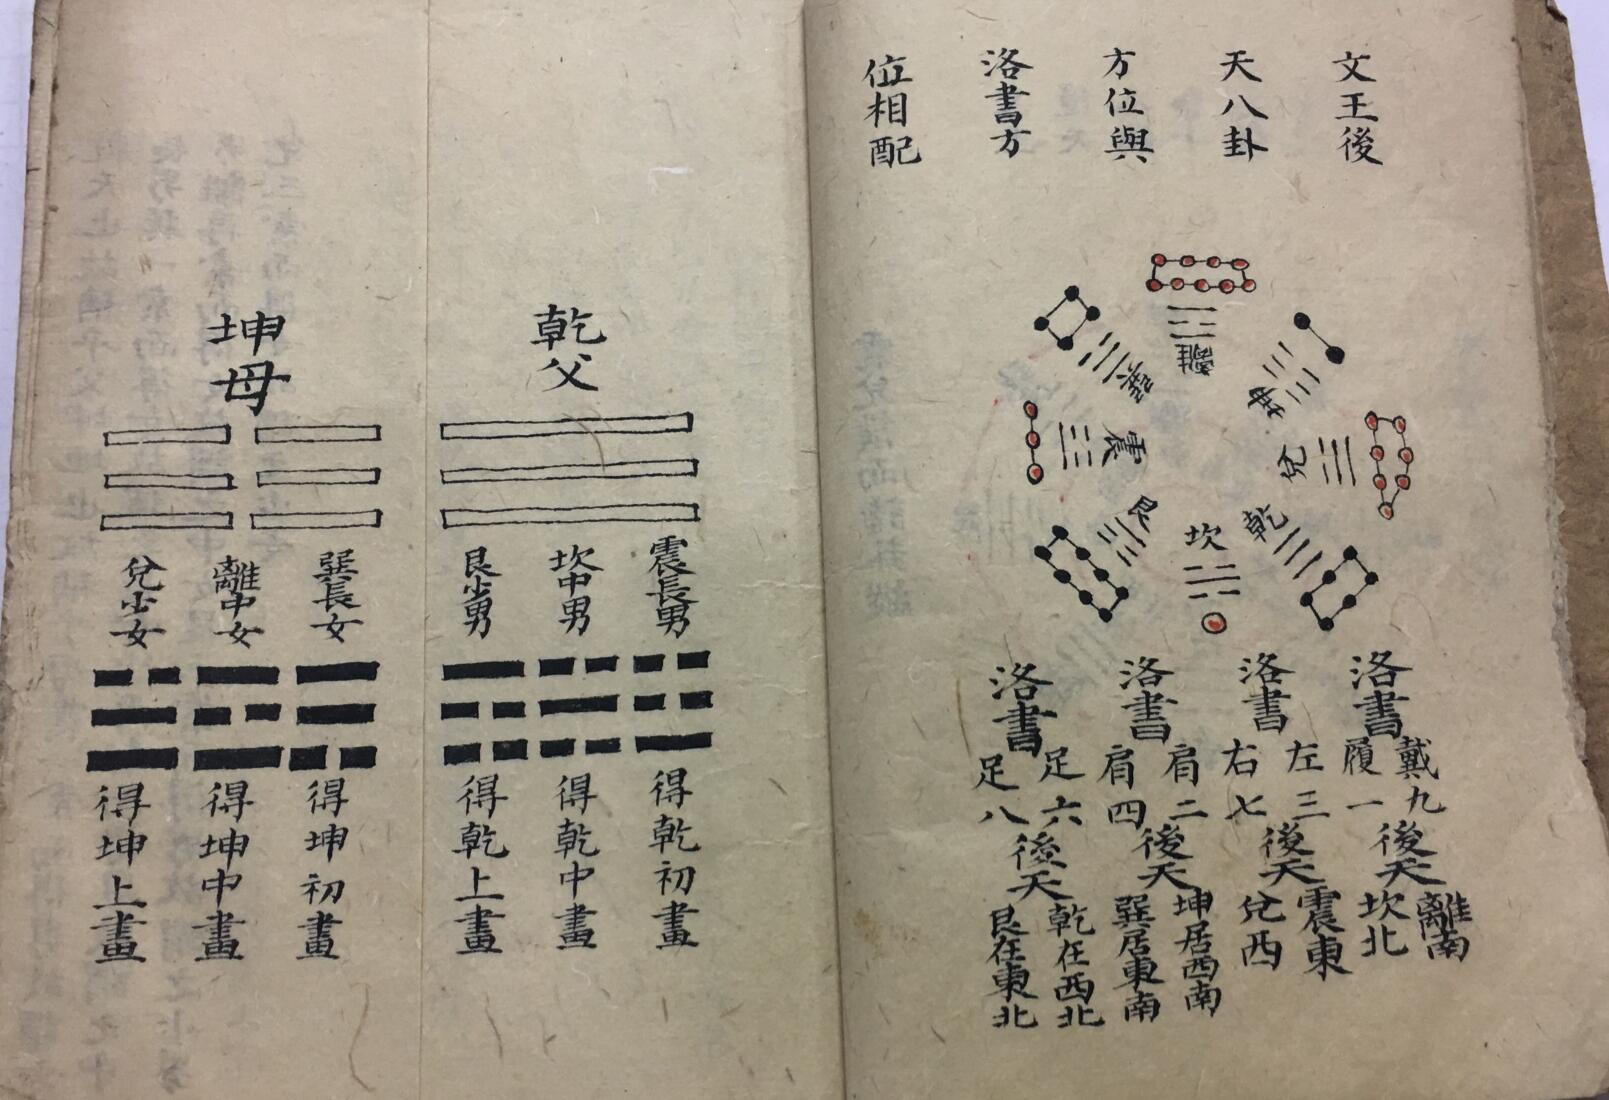 文王後
天八卦
方位與
洛書方
位相配
離
坤
兌
乾
坎
艮
震
巽
洛書
戴九
履一
後天
離南
坎北
洛書
左三
右七
後天
震東
兌西
洛書
肩二
肩四
後天
坤居西南
巽居東南
洛書
足六
足八
後天
乾在西北
艮在東北
乾父
震長男
得乾初畫
坎中男
得乾中畫
艮少男
得乾上畫
坤母
巽長女
得坤初畫
離中女
得坤中畫
兌少女
得坤上畫